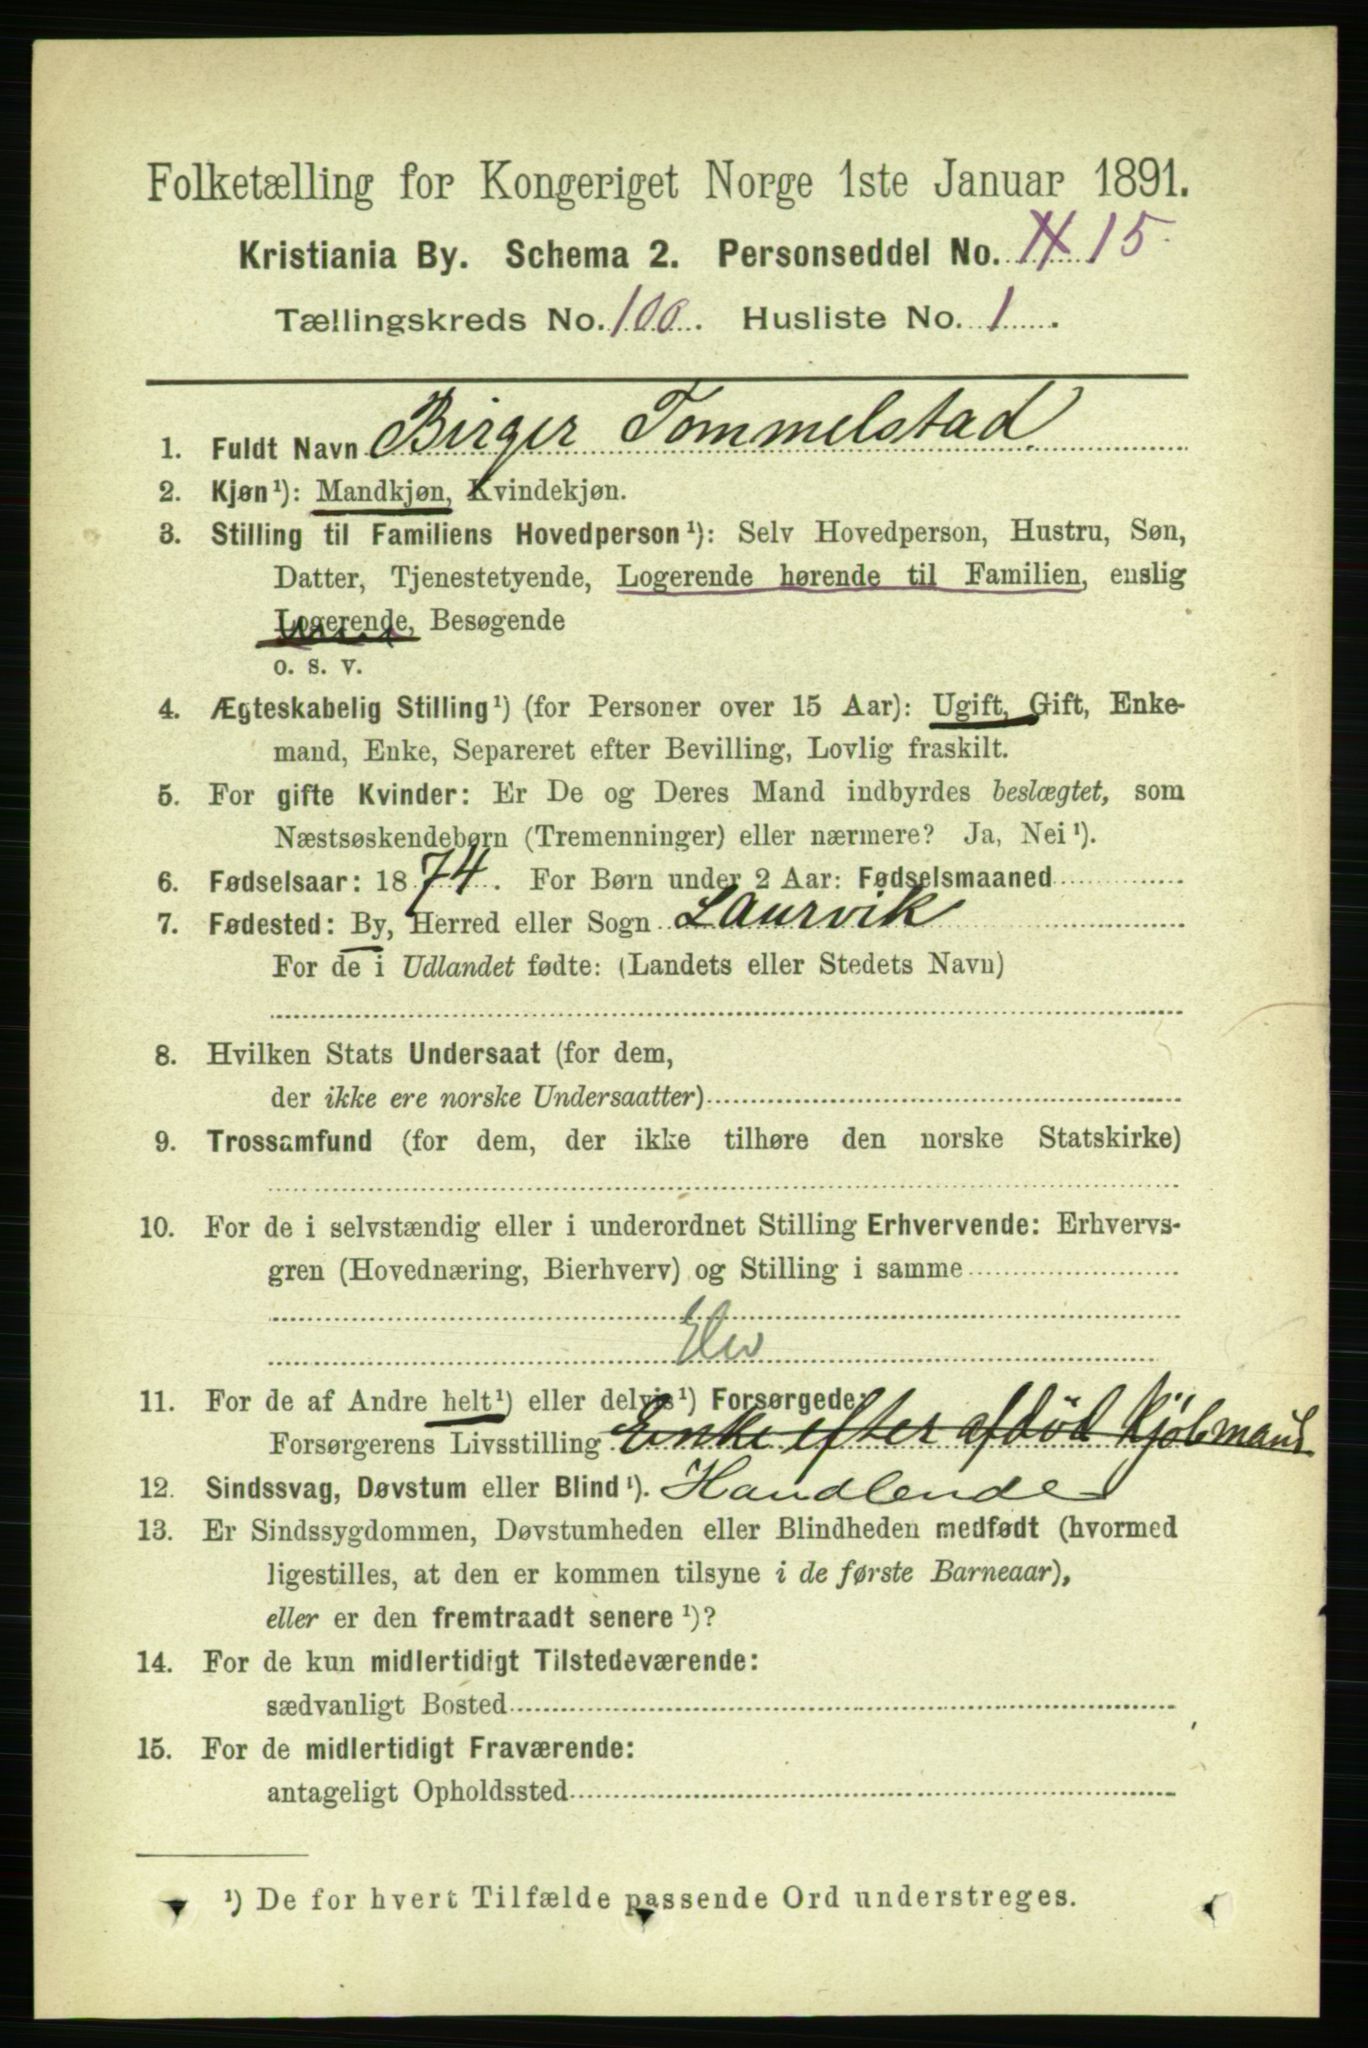 Folketælling for Kongeriget Norge 1ste Januar 1891.
Kristiania By. Schema 2. Personseddel No. 15
Tællingskreds No. 100. Husliste No. 1.
1. Fuldt Navn Birger Tommelstad
2. Kjøn¹): Mandkjøn, Kvindekjøn.
3. Stilling til Familiens Hovedperson¹): Selv Hovedperson, Hustru, Søn,
Datter, Tjenestetyende, Logerende hørende til Familien, enslig
Logerende, Besøgende
o. s. v.
4. Ægteskabelig Stilling¹) (for Personer over 15 Aar): Ugift, Gift, Enke-
mand, Enke, Separeret efter Bevilling, Lovlig fraskilt.
5. For gifte Kvinder: Er De og Deres Mand indbyrdes beslægtet, som
Næstsøskendebørn (Tremenninger) eller nærmere? Ja, Nei¹).
6. Fødselsaar: 1874. For Børn under 2 Aar: Fødselsmaaned
7. Fødested: By, Herred eller Sogn Laurvik
For de i Udlandet fødte: (Landets eller Stedets Navn)
8. Hvilken Stats Undersaat (for dem,
der ikke ere norske Undersaatter)
9. Trossamfund (for dem, der ikke tilhøre den norske Statskirke)
10. For de i selvstændig eller i underordnet Stilling Erhvervende: Erhvervs-
gren (Hovednæring, Bierhverv) og Stilling i samme
Elev
11. For de af Andre helt¹) eller delvis¹) Forsørgede:
Forsørgerens Livsstilling Enke efter afdöd Kjöbmand
12. Sindssvag, Døvstum eller Blind¹). Handlende
13. Er Sindssygdommen, Døvstumheden eller Blindheden medfødt (hvormed
ligestilles, at den er kommen tilsyne i de første Barneaar),
eller er den fremtraadt senere¹)?
14. For de kun midlertidigt Tilstedeværende:
sædvanligt Bosted
15. For de midlertidigt Fraværende:
antageligt Opholdssted
¹) De for hvert Tilfælde passende Ord understreges.